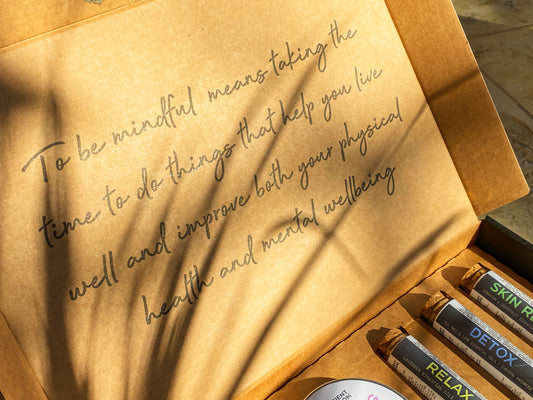 To be mindful means taking the
time to do things that help you live
well and improve both your physical
health and mental wellbeing
SKIN RE
DETOX
RELAX